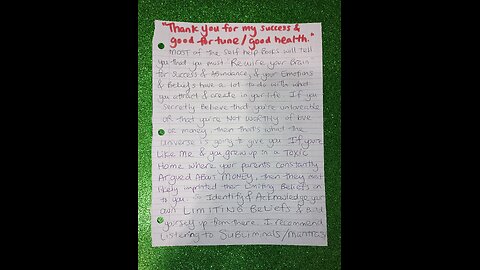 "Thank you for my success &
good fortune/good health."
MOST of the Self help Books will tell
you that you must Rewire your Brain
for Success & Abundance, & your Emotions
& Beliefs have a lot to do with what
you attract & create in your life. If you
secretly Believe that you're unloveable
OR that you're NOT worthy of love
OR money, then that's what the
universe is going to give you If you're
Like Me & you grew up in a TOXIC
Home where your parents constantly
Argued About MONEY, then they most
likely imprinted their Limiting Beliefs on
to you. Identify & Acknowledge your
own LIMITING BELiefs & Build
yourself up from there. I recommend
Listening to SUBliminals/MANTRAS/